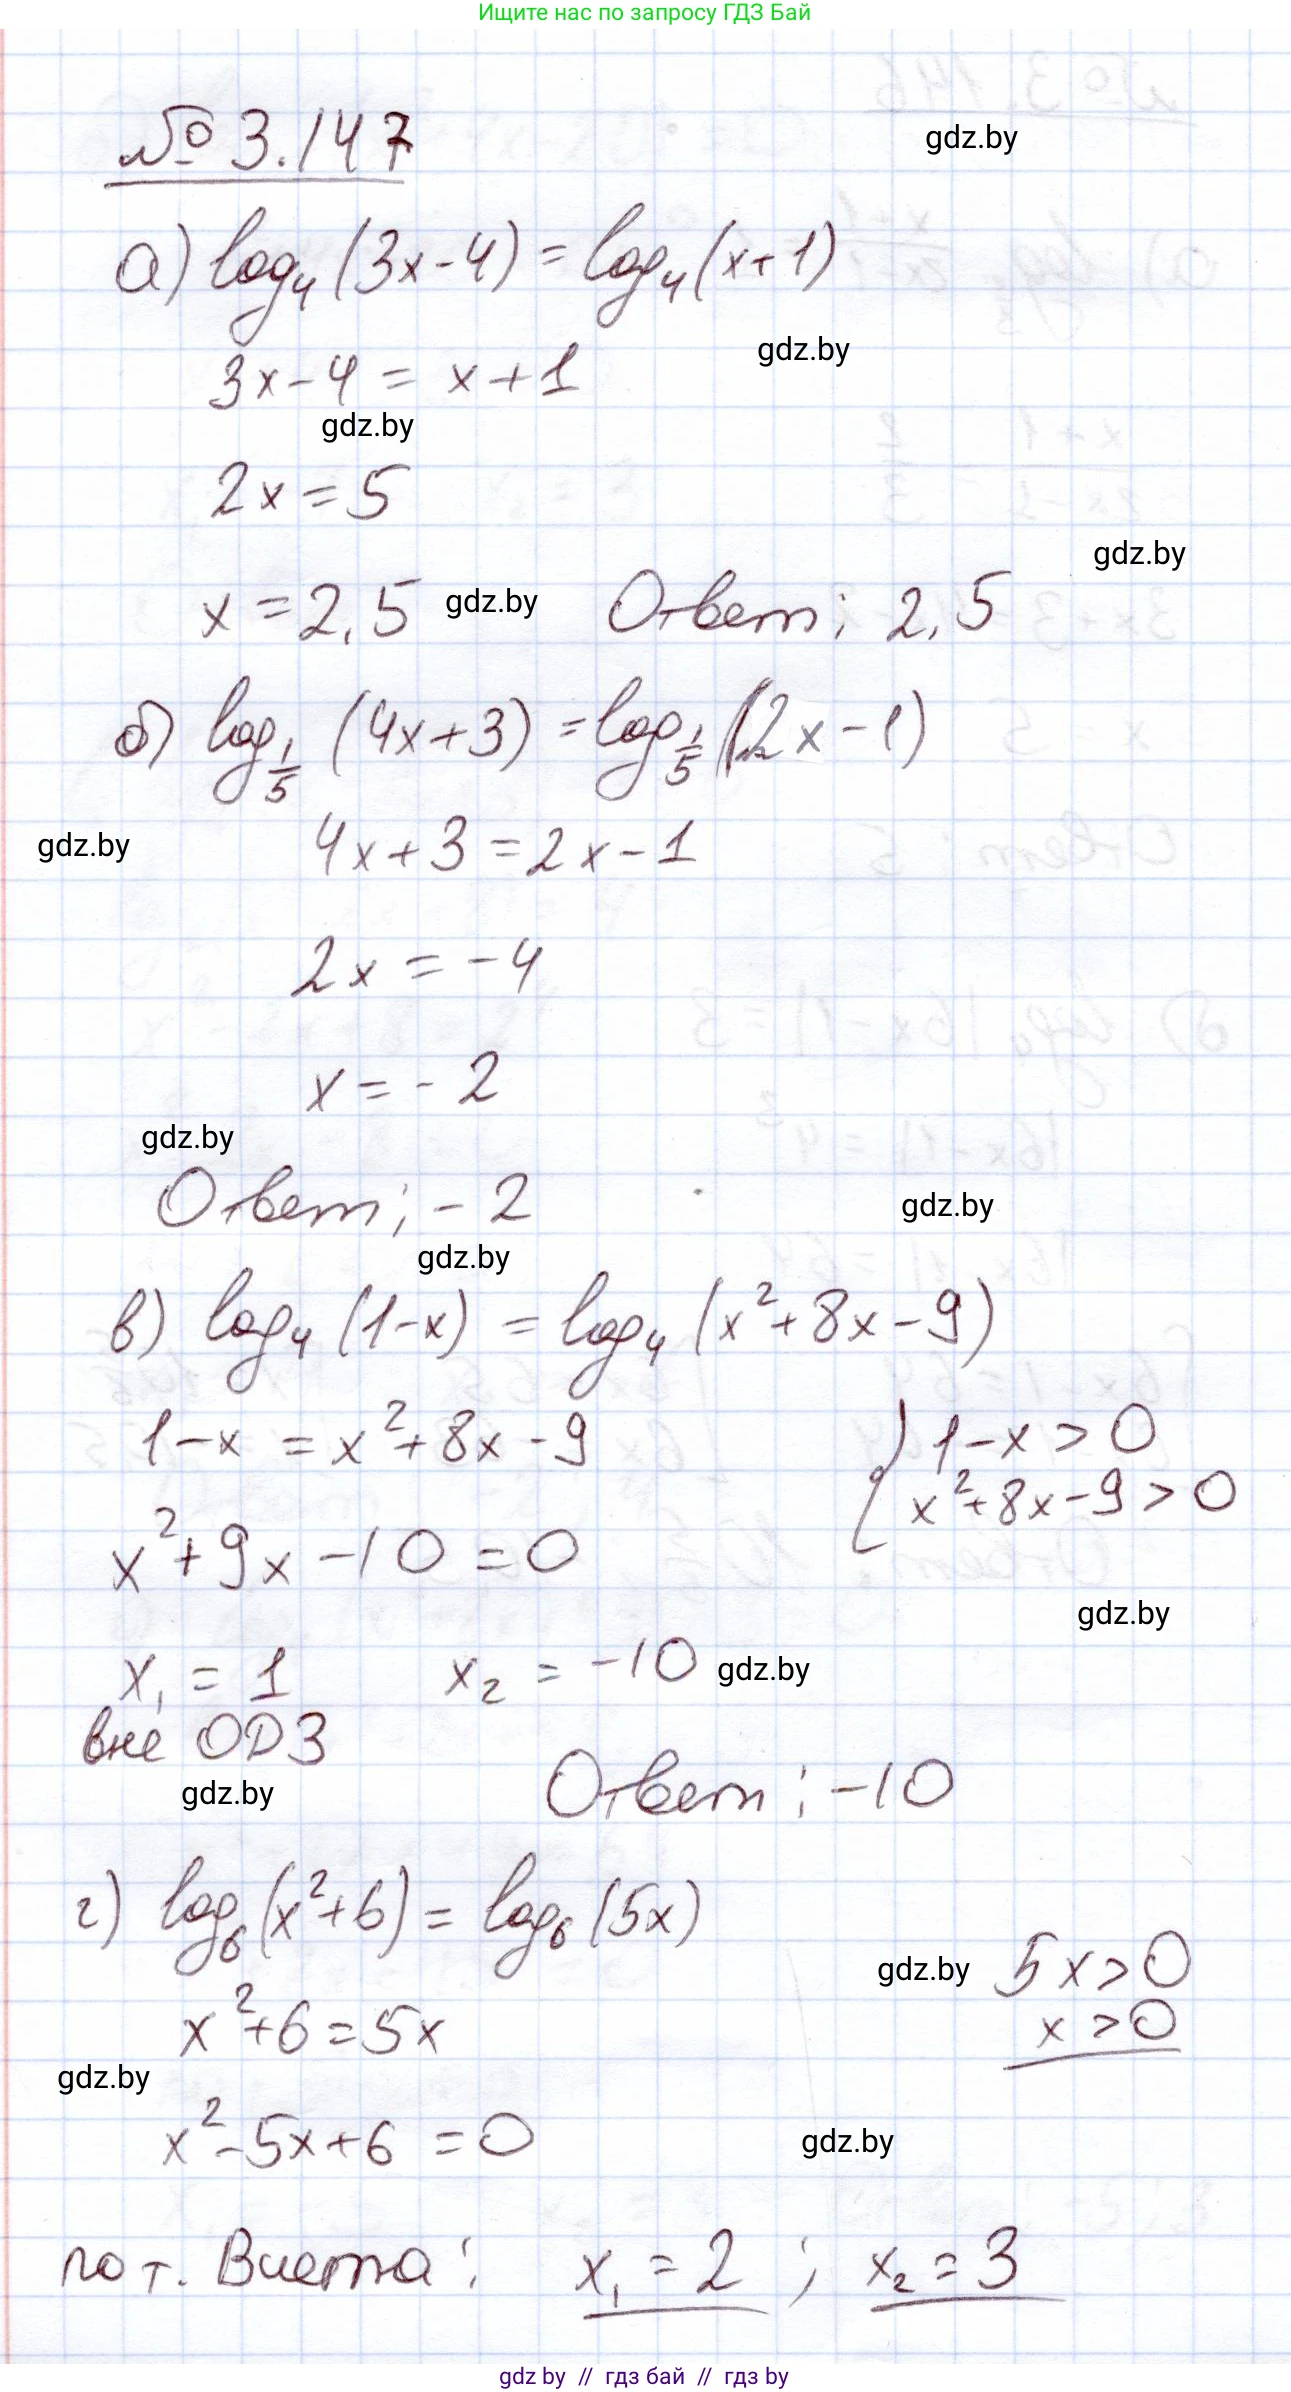 Ищите нас по запросу ГДЗ Бай
№ 3.147
gdz.by
а) log₄(3x-4) = log₄(x+1)
gdz.by
3x-4 = x+1
gdz.by
2x = 5
gdz.by
x = 2,5 gdz.by Ответ: 2,5
б) log_{1/5} (4x+3) = log_{1/5} (2x-1)
gdz.by 4x+3 = 2x-1
2x = -4
x = -2
gdz.by
Ответ: -2 gdz.by
gdz.by
в) log₄(1-x) = log₄(x²+8x-9)
1-x = x²+8x-9 { 1-x > 0
x²+8x-9 > 0
x²+9x-10 = 0
gdz.by
x₁ = 1 x₂ = -10 gdz.by
вне ОДЗ
gdz.by Ответ: -10
г) log₆(x²+6) = log₆(5x)
gdz.by 5x>0
x²+6=5x x>0
gdz.by
x²-5x+6 = 0 gdz.by
по т. Виета: x₁ = 2 ; x₂ = 3
gdz by // гдз бай // гдз by